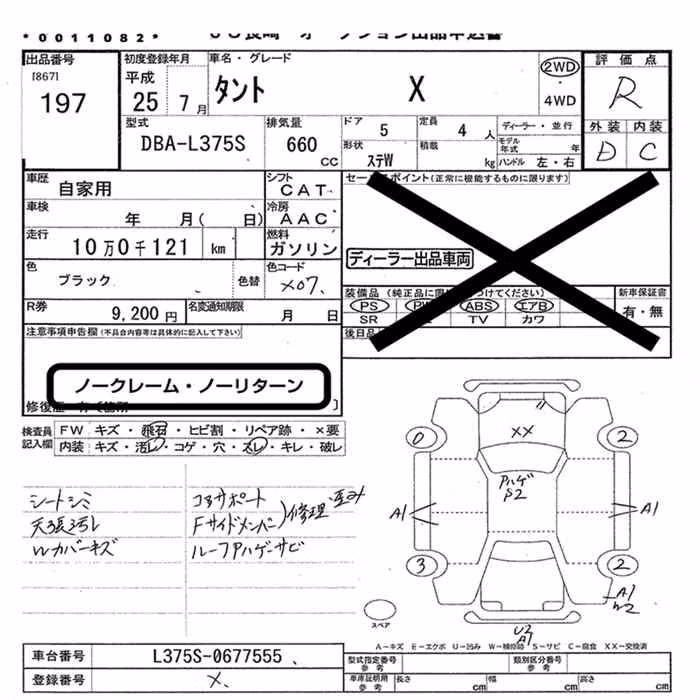 *0011082*
出品番号
[867]
197
初度登録年月
平成
25年 7月
車名・グレード
タント X
2WD
・
4WD
評価点
R
外装 内装
D C
型式
DBA-L375S
排気量
660
CC
ドア 5
定員 4人
ディーラー・並行
形状 ステW
積載 kg
モデル年式 年
ハンドル 左・右
車歴
自家用
シフト
CAT
車検
年 月( 日)
冷房
AAC
走行
10万0千121 km
燃料
ガソリン
色
ブラック
色替
色コード
X07
R券
9,200円
名変通知期限
月 日
セールスポイント(正常に機能するものに限ります)
ディーラー出品車両
装備品
PS ABS エアB
SR TV カワ
新車保証書
有・無
後日品
注意事項申告欄(不具合内容等は具体的に記入して下さい)
ノークレーム・ノーリターン
検査員記入欄
FW キズ・飛石・ヒビ割・リペア跡・×要
内装 キズ・汚レ・コゲ・穴・スレ・キレ・破レ
シートシミ
天張汚れ
Wカバーキズ
コアサポート
Fサイドメンバー
修理 歪み
ルーフアハゲサビ
0
2
XX
アハゲ
P2
A1
A1
3
2
A1
W2
スペア
U2
A1
A-キズ E-エクボ U-凹み W-補修跡 S-サビ C-腐食 XX-交換済
車台番号
L375S-0677555
登録番号
X
型式指定番号
参考
類別区分番号
参考
車庫証明用
参考
長さ cm
幅 cm
高さ cm